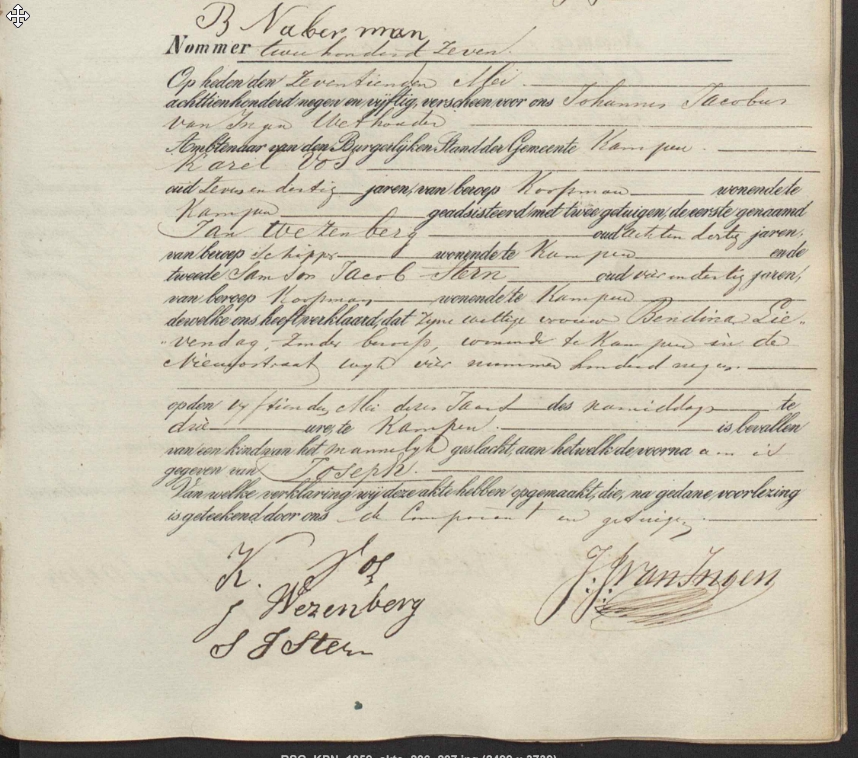 B Naberman
Nommer twee honderd Zeven.
Op heden den Zeventienden Mei
achttienhonderd negen en vijftig, verscheen voor ons Johannes Jacobus
van Ingen Wethouder
Ambtenaar van den Burgerlijken Stand der Gemeente Kampen.
Karel Vos
oud Zeven en dertig jaren, van beroep Koopman wonende te
Kampen geadsisteerd met twee getuigen, de eerste genaamd
Jan Wezenberg oud acht en dertig jaren,
van beroep Schipper wonende te Kampen en de
tweede Samson Jacob Stern oud vier en dertig jaren,
van beroep Koopman wonende te Kampen
dewelke ons heeft verklaard, dat zyne wettige vrouw Bendina Lie„
„vendag, zonder beroep, wonende te Kampen in de
Nieuwstraat wyk vier nummer honderd negen.
op den vyftienden Mei dezes Jaars des namiddags te
drie ure, te Kampen. is bevallen
van een kind van het mannelyk geslacht, aan hetwelk de voornaam is
gegeven van Joseph.
Van welke verklaring wij deze akte hebben opgemaakt, die, na gedane voorlezing
is geteekend door ons de Comparant en getuigen.
K. Vos
J Wezenberg
S J Stern
J. J. van Ingen